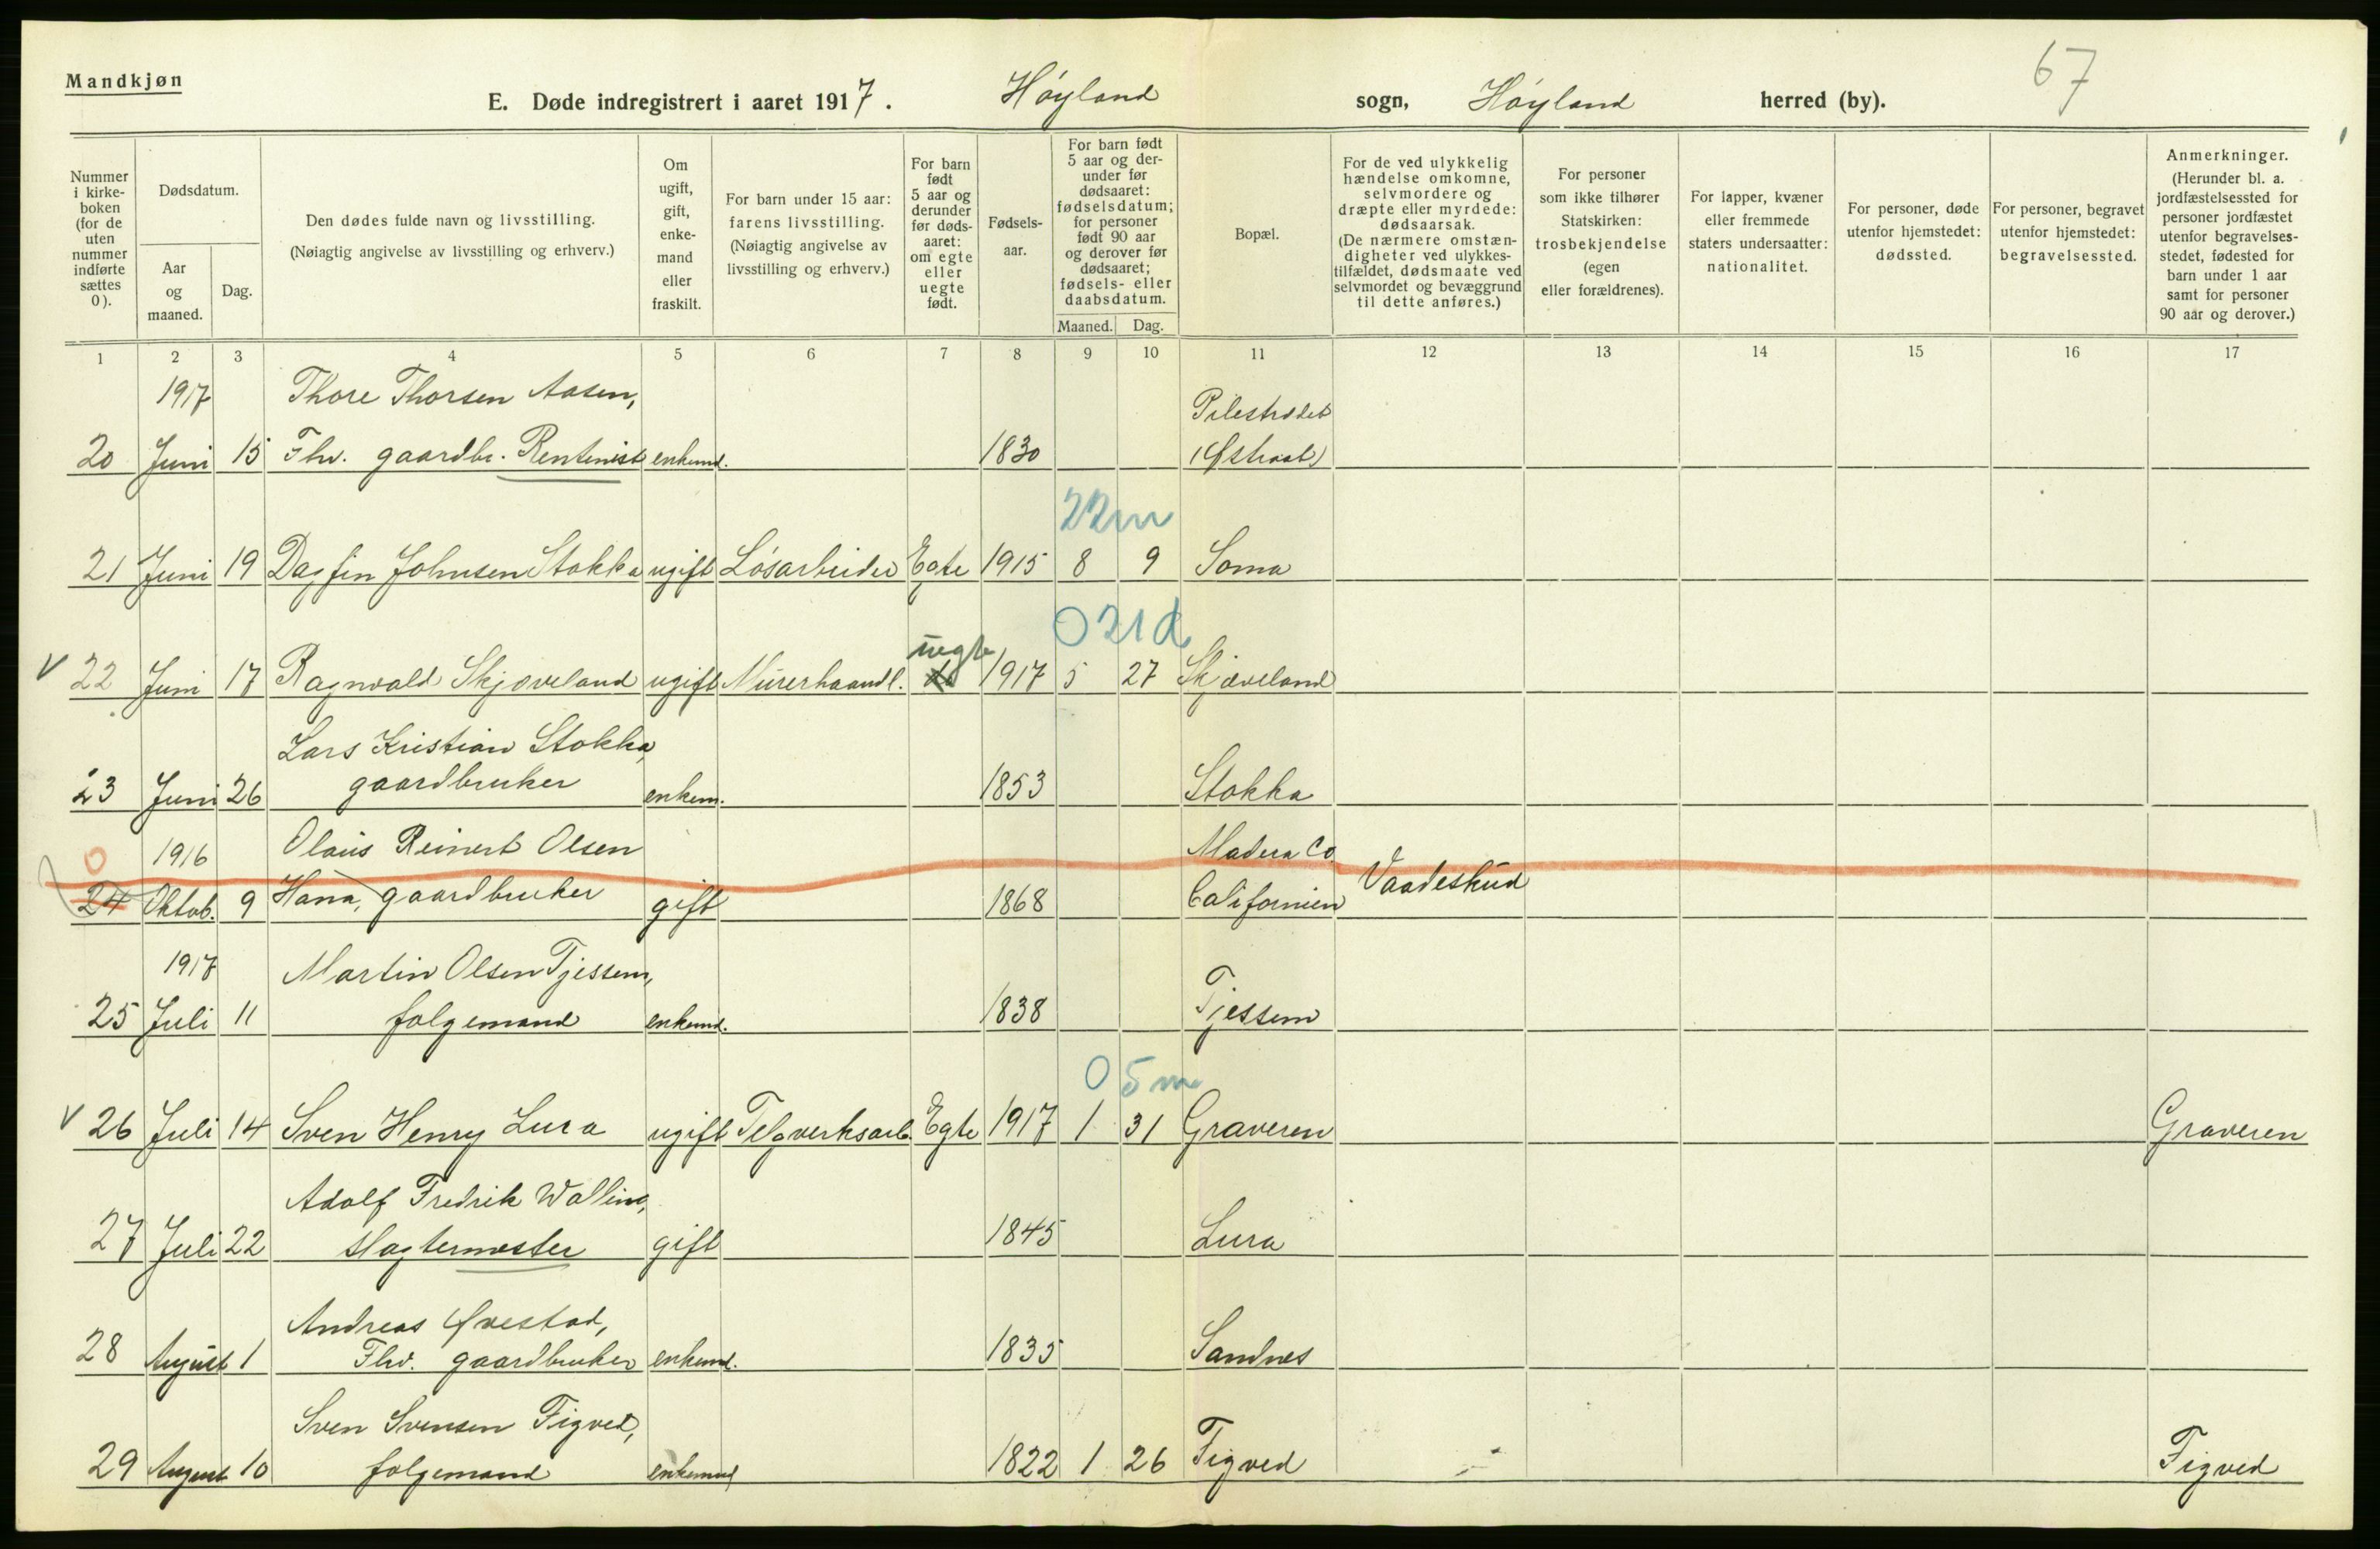 67
Mandkjøn
E. Døde indregistrert i aaret 1917. Høyland sogn, Høyland herred (by).
Nummer i kirke-boken (for de uten nummer indførte sættes 0).
Dødsdatum.
Aar og maaned.
Dag.
Den dødes fulde navn og livsstilling.
(Nøiagtig angivelse av livsstilling og erhverv.)
Om ugift, gift, enke-mand eller fraskilt.
For barn under 15 aar: farens livsstilling. (Nøiagtig angivelse av livsstilling og erhverv.)
For barn født 5 aar og derunder før døds-aaret: om egte eller uegte født.
Fødsels-aar.
For barn født 5 aar og der-under før dødsaaret: fødselsdatum; for personer født 90 aar og derover før dødsaaret; fødsels- eller daabsdatum.
Maaned. Dag.
Bopæl.
For de ved ulykkelig hændelse omkomne, selvmordere og dræpte eller myrdede: dødsaarsak. (De nærmere omstæn-digheter ved ulykkes-tilfældet, dødsmaate ved selvmordet og bevæggrund til dette anføres.)
For personer som ikke tilhører Statskirken: trosbekjendelse (egen eller forældrenes).
For lapper, kvæner eller fremmede staters undersaatter: nationalitet.
For personer, døde utenfor hjemstedet: dødssted.
For personer, begravet utenfor hjemstedet: begravelsessted.
Anmerkninger. (Herunder bl. a. jordfæstelsessted for personer jordfæstet utenfor begravelses-stedet, fødested for barn under 1 aar samt for personer 90 aar og derover.)
1 2 3 4 5 6 7 8 9 10 11 12 13 14 15 16 17
1917 Thore Thorsen Aasen, Pilestrædet
20 Juni 15 Fhv. gaardbr. Rentenist enkemd. 1830 (Østraat)
22m
21 Juni 19 Dagfin Johnsen Stokka ugift Løsarbeider Egte 1915 8 9 Soma
0 21d
uegte
V 22 Juni 17 Ragnvald Skjøveland ugift Murerhaandl. 1917 5 27 Skjæveland
Lars Kristian Stokka,
23 Juni 26 gaardbruker enkem. 1853 Stokka
0 1916 Olaus Reinert Olsen Madera Co.
24 Oktob. 9 Hana, gaardbruker gift 1868 Californien Vaadeskud
1917 Martin Olsen Tjessem,
25 Juli 11 følgemand enkemd. 1838 Tjessem
0 5m
V 26 Juli 14 Sven Henry Lura ugift Telgverksarb. Egte 1917 1 31 Graveren Graveren
Adolf Fredrik Walling,
27 Juli 22 slagtermester gift 1845 Lura
Andreas Øvestad,
28 August 1 Fhv. gaardbruker enkemd. 1835 Sandnes
Sven Svensen Figved,
29 August 10 følgemand enkemd 1822 1 26 Figved Figved